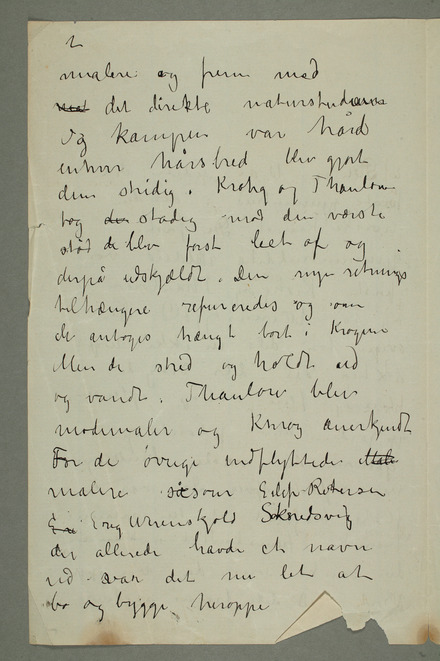 2
malere og frem med
det direkte naturstudium
Og kampen var hård
enhver hårsbred blev gjort
dem stridig. Krohg og Thaulow
tog stadig mod den værste
stød de blev først leet af og
derpå udskjældt. Den nye retnings
tilhængere refuseredes og om
de antoges hængt bort i Krogene
Men de stred og holdt ud
og vandt. Thaulow blev
modemaler og Khrog anerkjendt
For de øvrige indflyttede
malere såsom Eilif Petersen
Erig Wrenskjold Skredsvig
der allerede havde et navn
ud var det nu let at
bo og bygge heroppe